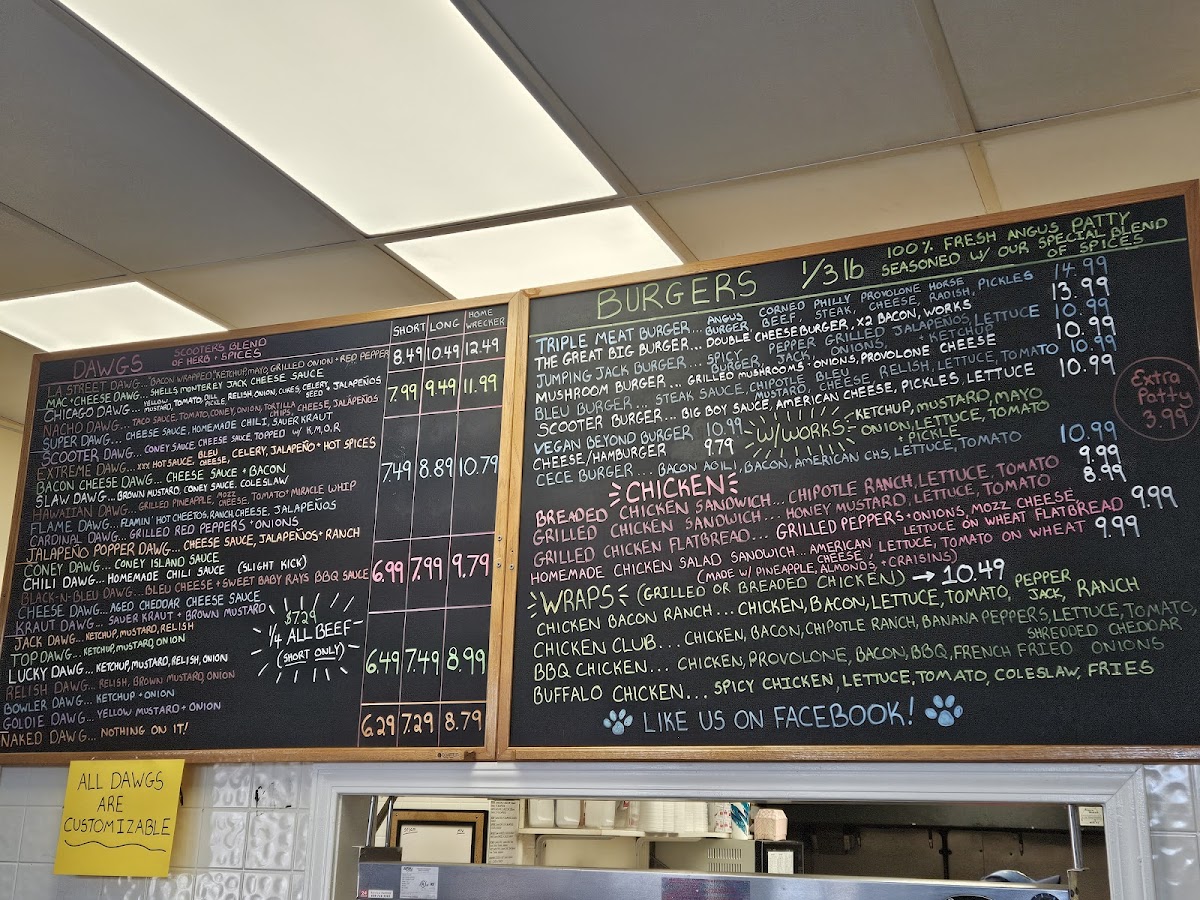 DAWGS SCOOTERS BLEND OF HERB + SPICES
SHORT LONG HOME WRECKER
LA STREET DAWG... BACON WRAPPED, KETCHUP, MAYO, GRILLED ONION + RED PEPPER 8.49 10.49 12.49
MAC + CHEESE DAWG... SHELLS MONTEREY JACK CHEESE SAUCE
CHICAGO DAWG... YELLOW MUSTARD, TOMATO, DILL PICKLE, RELISH, ONION, CUKES, CELERY SEED, JALAPEÑOS 7.99 9.49 11.99
NACHO DAWG... TACO SAUCE, TOMATO, CONEY, ONION, TORTILLA CHIPS, CHEESE, JALAPEÑOS
SUPER DAWG... CHEESE SAUCE, HOMEMADE CHILI, SAUER KRAUT
SCOOTER DAWG... CONEY SAUCE, CHEESE SAUCE, TOPPED W/ K,M,O,R
EXTREME DAWG... XXX HOT SAUCE, BLEU CHEESE, CELERY, JALAPEÑO + HOT SPICES
BACON CHEESE DAWG... CHEESE SAUCE + BACON 7.49 8.89 10.79
SLAW DAWG... BROWN MUSTARD, CONEY SAUCE, COLESLAW
HAWAIIAN DAWG... GRILLED PINEAPPLE, MOZZ CHEESE, TOMATO + MIRACLE WHIP
FLAME DAWG... FLAMIN' HOT CHEETOS, RANCH, CHEESE, JALAPEÑOS
CARDINAL DAWG... GRILLED RED PEPPERS + ONIONS
JALAPEÑO POPPER DAWG... CHEESE SAUCE, JALAPEÑOS + RANCH
CONEY DAWG... CONEY ISLAND SAUCE
CHILI DAWG... HOMEMADE CHILI SAUCE (SLIGHT KICK) 6.99 7.99 9.79
BLACK-N-BLEU DAWG... BLEU CHEESE + SWEET BABY RAYS BBQ SAUCE
CHEESE DAWG... AGED CHEDDAR CHEESE SAUCE
KRAUT DAWG... SAUER KRAUT + BROWN MUSTARD
JACK DAWG... KETCHUP, MUSTARD, RELISH
TOP DAWG... KETCHUP, MUSTARD, ONION
LUCKY DAWG... KETCHUP, MUSTARD, RELISH, ONION 6.49 7.49 8.99
RELISH DAWG... RELISH, BROWN MUSTARD, ONION
BOWLER DAWG... KETCHUP + ONION
GOLDIE DAWG... YELLOW MUSTARD + ONION
NAKED DAWG... NOTHING ON IT! 6.29 7.29 8.79
$7.29
1/4 ALL BEEF
(SHORT ONLY)
BURGERS 1/3 lb 100% FRESH ANGUS PATTY
SEASONED W/ OUR SPECIAL BLEND
OF SPICES
TRIPLE MEAT BURGER... ANGUS BURGER, CORNED BEEF, PHILLY STEAK, PROVOLONE CHEESE, HORSE RADISH, PICKLES 14.99
THE GREAT BIG BURGER... DOUBLE CHEESEBURGER, X2 BACON, WORKS 13.99
JUMPING JACK BURGER... SPICY BURGER, PEPPER JACK, GRILLED ONIONS, JALAPEÑOS, LETTUCE + KETCHUP 10.99
MUSHROOM BURGER... GRILLED MUSHROOMS + ONIONS, PROVOLONE CHEESE 10.99
BLEU BURGER... STEAK SAUCE, CHIPOTLE MUSTARD, BLEU CHEESE, RELISH, LETTUCE, TOMATO 10.99
SCOOTER BURGER... BIG BOY SAUCE, AMERICAN CHEESE, PICKLES, LETTUCE 10.99
VEGAN BEYOND BURGER 10.99
CHEESE/HAMBURGER 9.79
W/WORKS: KETCHUP, MUSTARD, MAYO
ONION, LETTUCE, TOMATO
+ PICKLE
CECE BURGER... BACON AOILI, BACON, AMERICAN CHS, LETTUCE, TOMATO 10.99
Extra
Patty
3.99
CHICKEN
BREADED CHICKEN SANDWICH... CHIPOTLE RANCH, LETTUCE, TOMATO 9.99
GRILLED CHICKEN SANDWICH... HONEY MUSTARD, LETTUCE, TOMATO 8.99
GRILLED CHICKEN FLATBREAD... GRILLED PEPPERS + ONIONS, MOZZ CHEESE, LETTUCE ON WHEAT FLATBREAD 9.99
HOMEMADE CHICKEN SALAD SANDWICH... AMERICAN CHEESE, LETTUCE, TOMATO ON WHEAT 9.99
(MADE W/ PINEAPPLE, ALMONDS, + CRAISINS)
WRAPS (GRILLED OR BREADED CHICKEN) → 10.49
CHICKEN BACON RANCH... CHICKEN, BACON, LETTUCE, TOMATO, PEPPER JACK, RANCH
CHICKEN CLUB... CHICKEN, BACON, CHIPOTLE RANCH, BANANA PEPPERS, LETTUCE, TOMATO, SHREDDED CHEDDAR
BBQ CHICKEN... CHICKEN, PROVOLONE, BACON, BBQ, FRENCH FRIED ONIONS
BUFFALO CHICKEN... SPICY CHICKEN, LETTUCE, TOMATO, COLESLAW, FRIES
LIKE US ON FACEBOOK!
ALL DAWGS
ARE
CUSTOMIZABLE